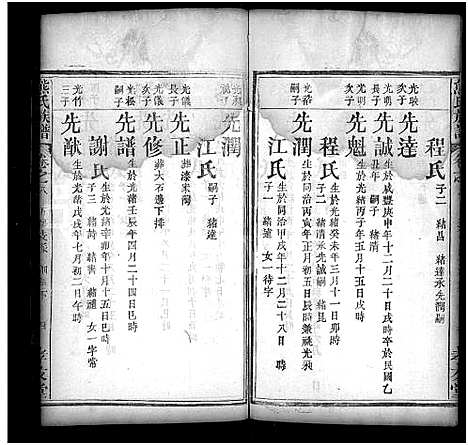 程氏
子二 緒昌 緒達承先潤嗣
光映
長子
先達
生於咸豐庚申十二月二十日戌時卒於光緒
丑年 嗣子 緒清
光映
次子
先誠
先魁
生於光緒癸未年三月十一日卯時
子二 緒清承先誠嗣 緒昆
光浩
嗣子
先潤
生於同治丙寅年五月十五日亥時兼祧光
江氏
生於同治甲戌年十二月二十八日 時
子一 緒達 女一待字
先潤
江氏
嗣子 緒達
光儀
長子
先正
葬漆朱灣
光儀
次子
先修
葬大石邊下排
光松
嗣子
先譜
生於光緒壬辰年四月二十四日巳時
謝氏
生於光緒辛卯年十月十五日巳時
子三 緒 緒 緒 女一字常
光竹
三子
先猷
生於光緒戊戌年七月初二日午時
氏族譜
孝友堂